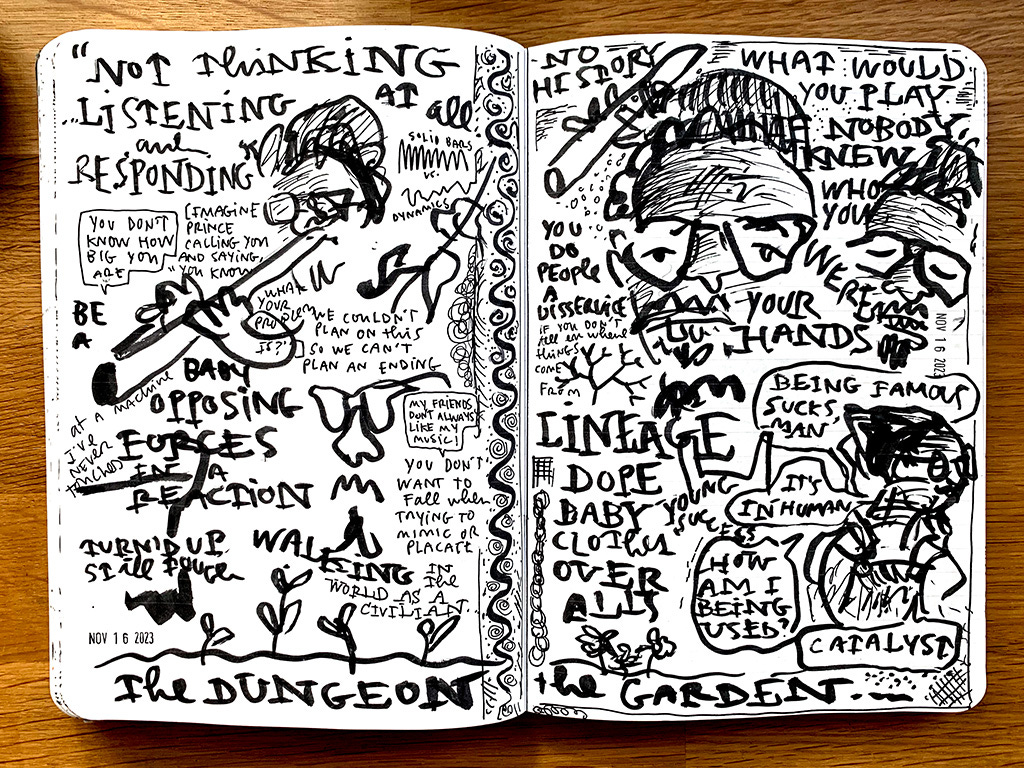 "NOT thiNKING
...LISTENING AT all
and
RESPONDING
SOLID BARS
VS.
DYNAMICS
YOU DON'T
KNOW HOW
BIG YOU
ARE
(IMAGINE
PRINCE
CALLING YOU
AND SAYING,
"YOU KNOW
WHAT
YOUR
PROBLEM
IS?"
WE COULDN'T
PLAN ON this
SO WE CAN'T
PLAN AN ENDING
BE
A
BABY
OPPOSING
FORCES
IN A
REACTION
I've
NEVER
at a machine
MY FRIENDS
DON'T ALWAYS
LIKE MY
MUSIC!
YOU DON'T
WANT TO
Fall when
TRYING TO
MIMIC OR
PLACATE
TURN'D UP
Still
WALKING IN
the
WORLD AS A
CIVILIAN...
NOV 16 2023
the DUNGEON
NO
HISTORY
WHAT WOULD
YOU PLAY
IF NOBODY
KNEW
WHO
YOU
WERE
YOU
DO
PEOPLE
A
DISSERVICE
IF YOU DON'T
tell em where
things
COME
FROM
YOUR
HANDS
NOV 16 2023
LINEAGE
BEING FAMOUS
SUCKS,
MAN
IT'S
INHUMAN
DOPE
BABY
CLOTHES
OVER
ALLS
YOUNG
SUCCESS
HOW
AM I
BEING
USED?
CATALYST
the GARDEN.